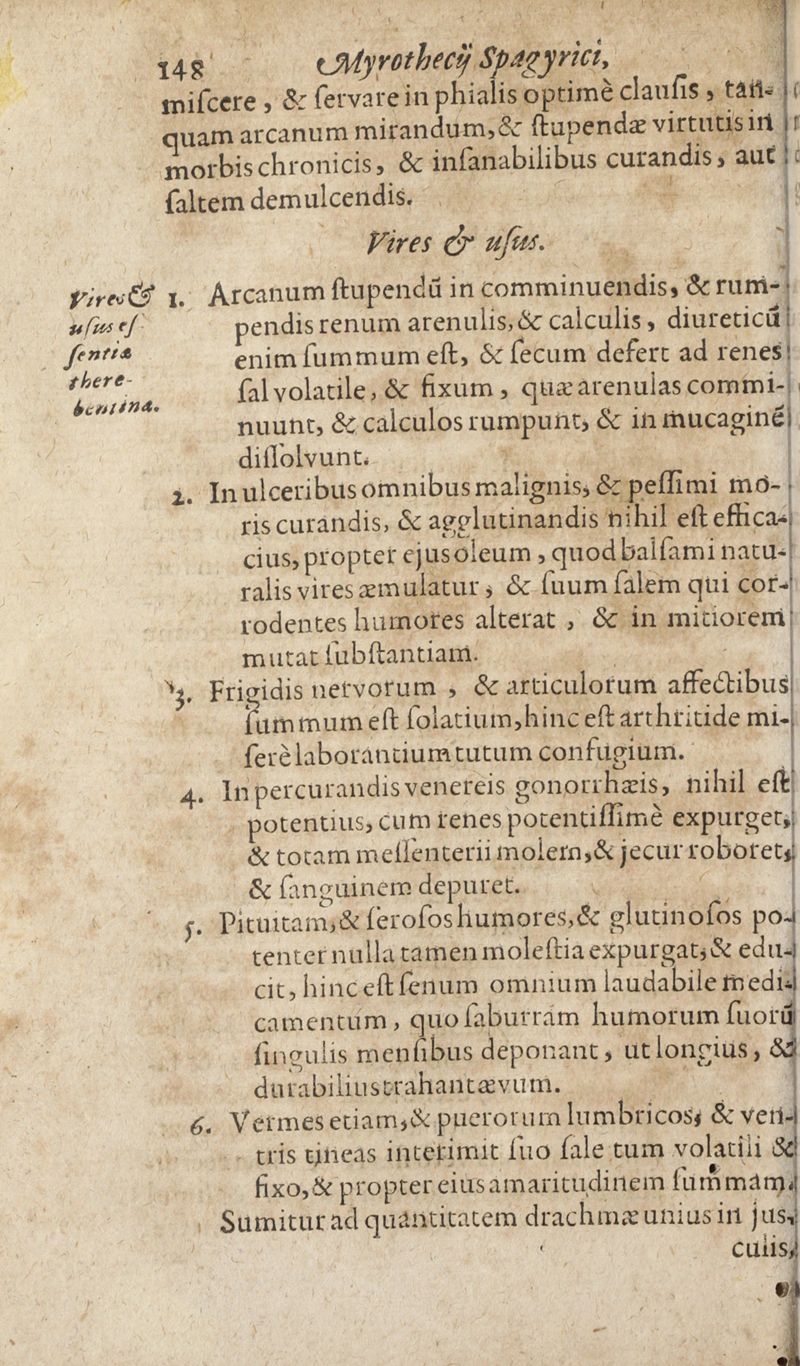 148 Myrothecij Spagyrici,
miſcere, & ſervare in phialis optimè clauſis, tan-
quam arcanum mirandum, & ſtupendæ virtutis in
morbis chronicis, & inſanabilibus curandis, aut
ſaltem demulcendis.
Vires & uſus.
Vires &
uſus eſ-
ſentiæ
there-
bentina.
1. Arcanum ſtupendū in comminuendis, & rum-
pendis renum arenulis, & calculis, diureticū
enim ſummum eſt, & ſecum defert ad renes
ſal volatile, & fixum, quæ arenulas commi-
nuunt, & calculos rumpunt, & in mucaginē
diſſolvunt.
2. In ulceribus omnibus malignis, & peſſimi mo-
ris curandis, & agglutinandis nihil eſt effica-
cius, propter ejus oleum, quod balſami natu-
ralis vires æmulatur, & ſuum ſalem qui cor-
rodentes humores alterat, & in mitiorem
mutat ſubſtantiam.
3. Frigidis nervorum, & articulorum affectibus
ſummum eſt ſolatium, hinc eſt arthritide mi-
ſerè laborantium tutum confugium.
4. In percurandis venereis gonorrhæis, nihil eſt
potentius, cum renes potentiſſimè expurget,
& totam meſſenterii molem, & jecur roboret,
& ſanguinem depuret.
5. Pituitam, & ſeroſos humores, & glutinoſos po-
tenter nulla tamen moleſtia expurgat, & edu-
cit, hinc eſt ſenum omnium laudabile medi-
camentum, quo ſaburram humorum ſuorū
ſingulis menſibus deponant, ut longius, &
durabilius trahant ævum.
6. Vermes etiam, & puerorum lumbricos, & ven-
tris tineas interimit ſuo ſale tum volatili &
fixo, & propter eius amaritudinem ſummam.
Sumitur ad quantitatem drachmæ unius in jus-
culis,